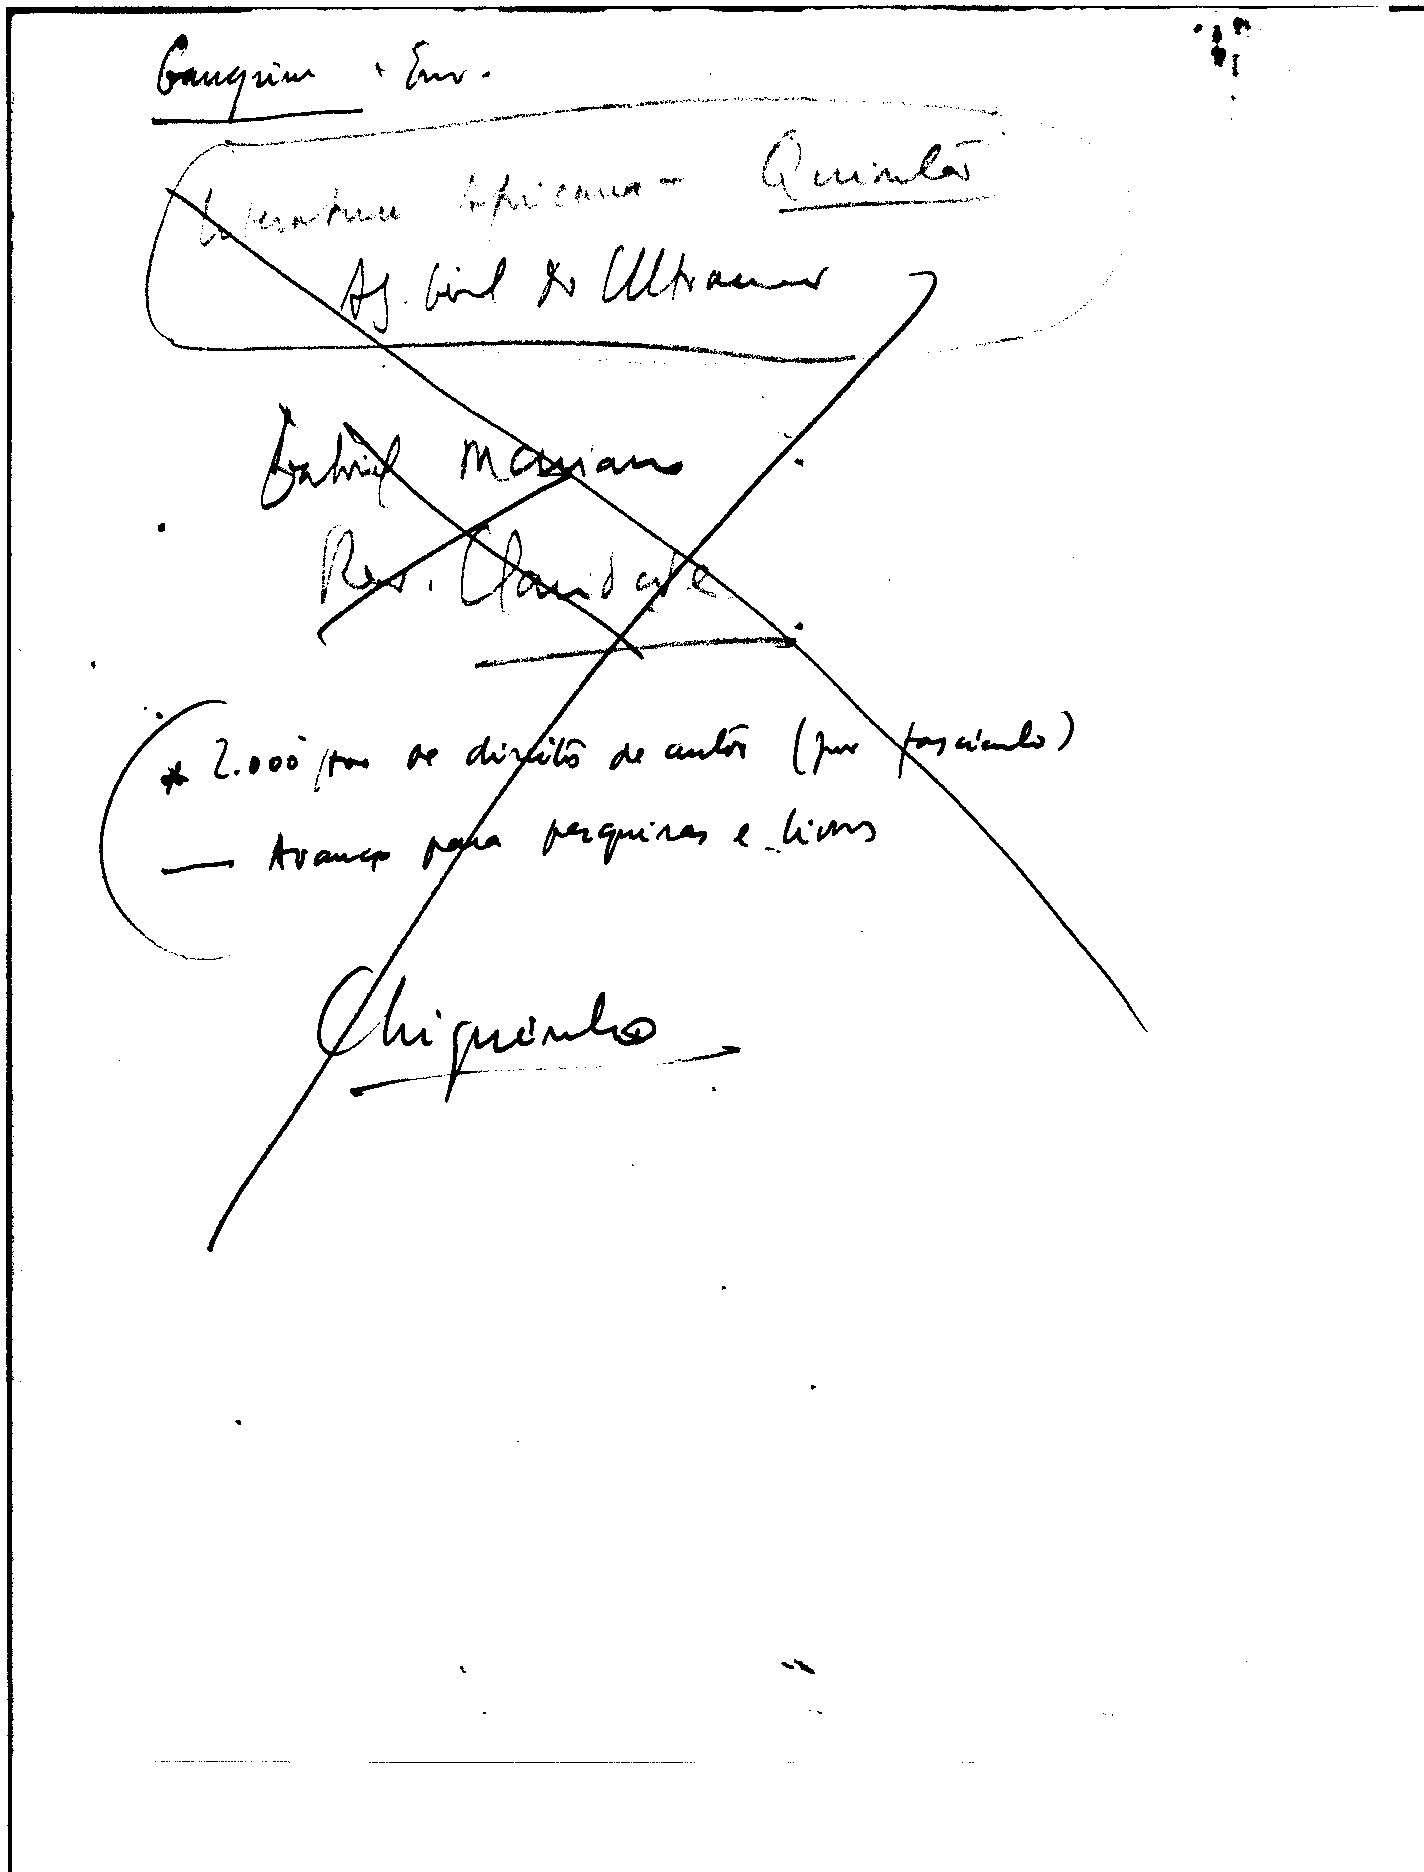 Literatura Africana - Quintão
Ag. Geral do Ultramar
Gabriel Mariano
Rev. Claridade
* 2.000 de direitos de autor (por fascículo)
— Avanço para pesquisas e livros
Chiquinho